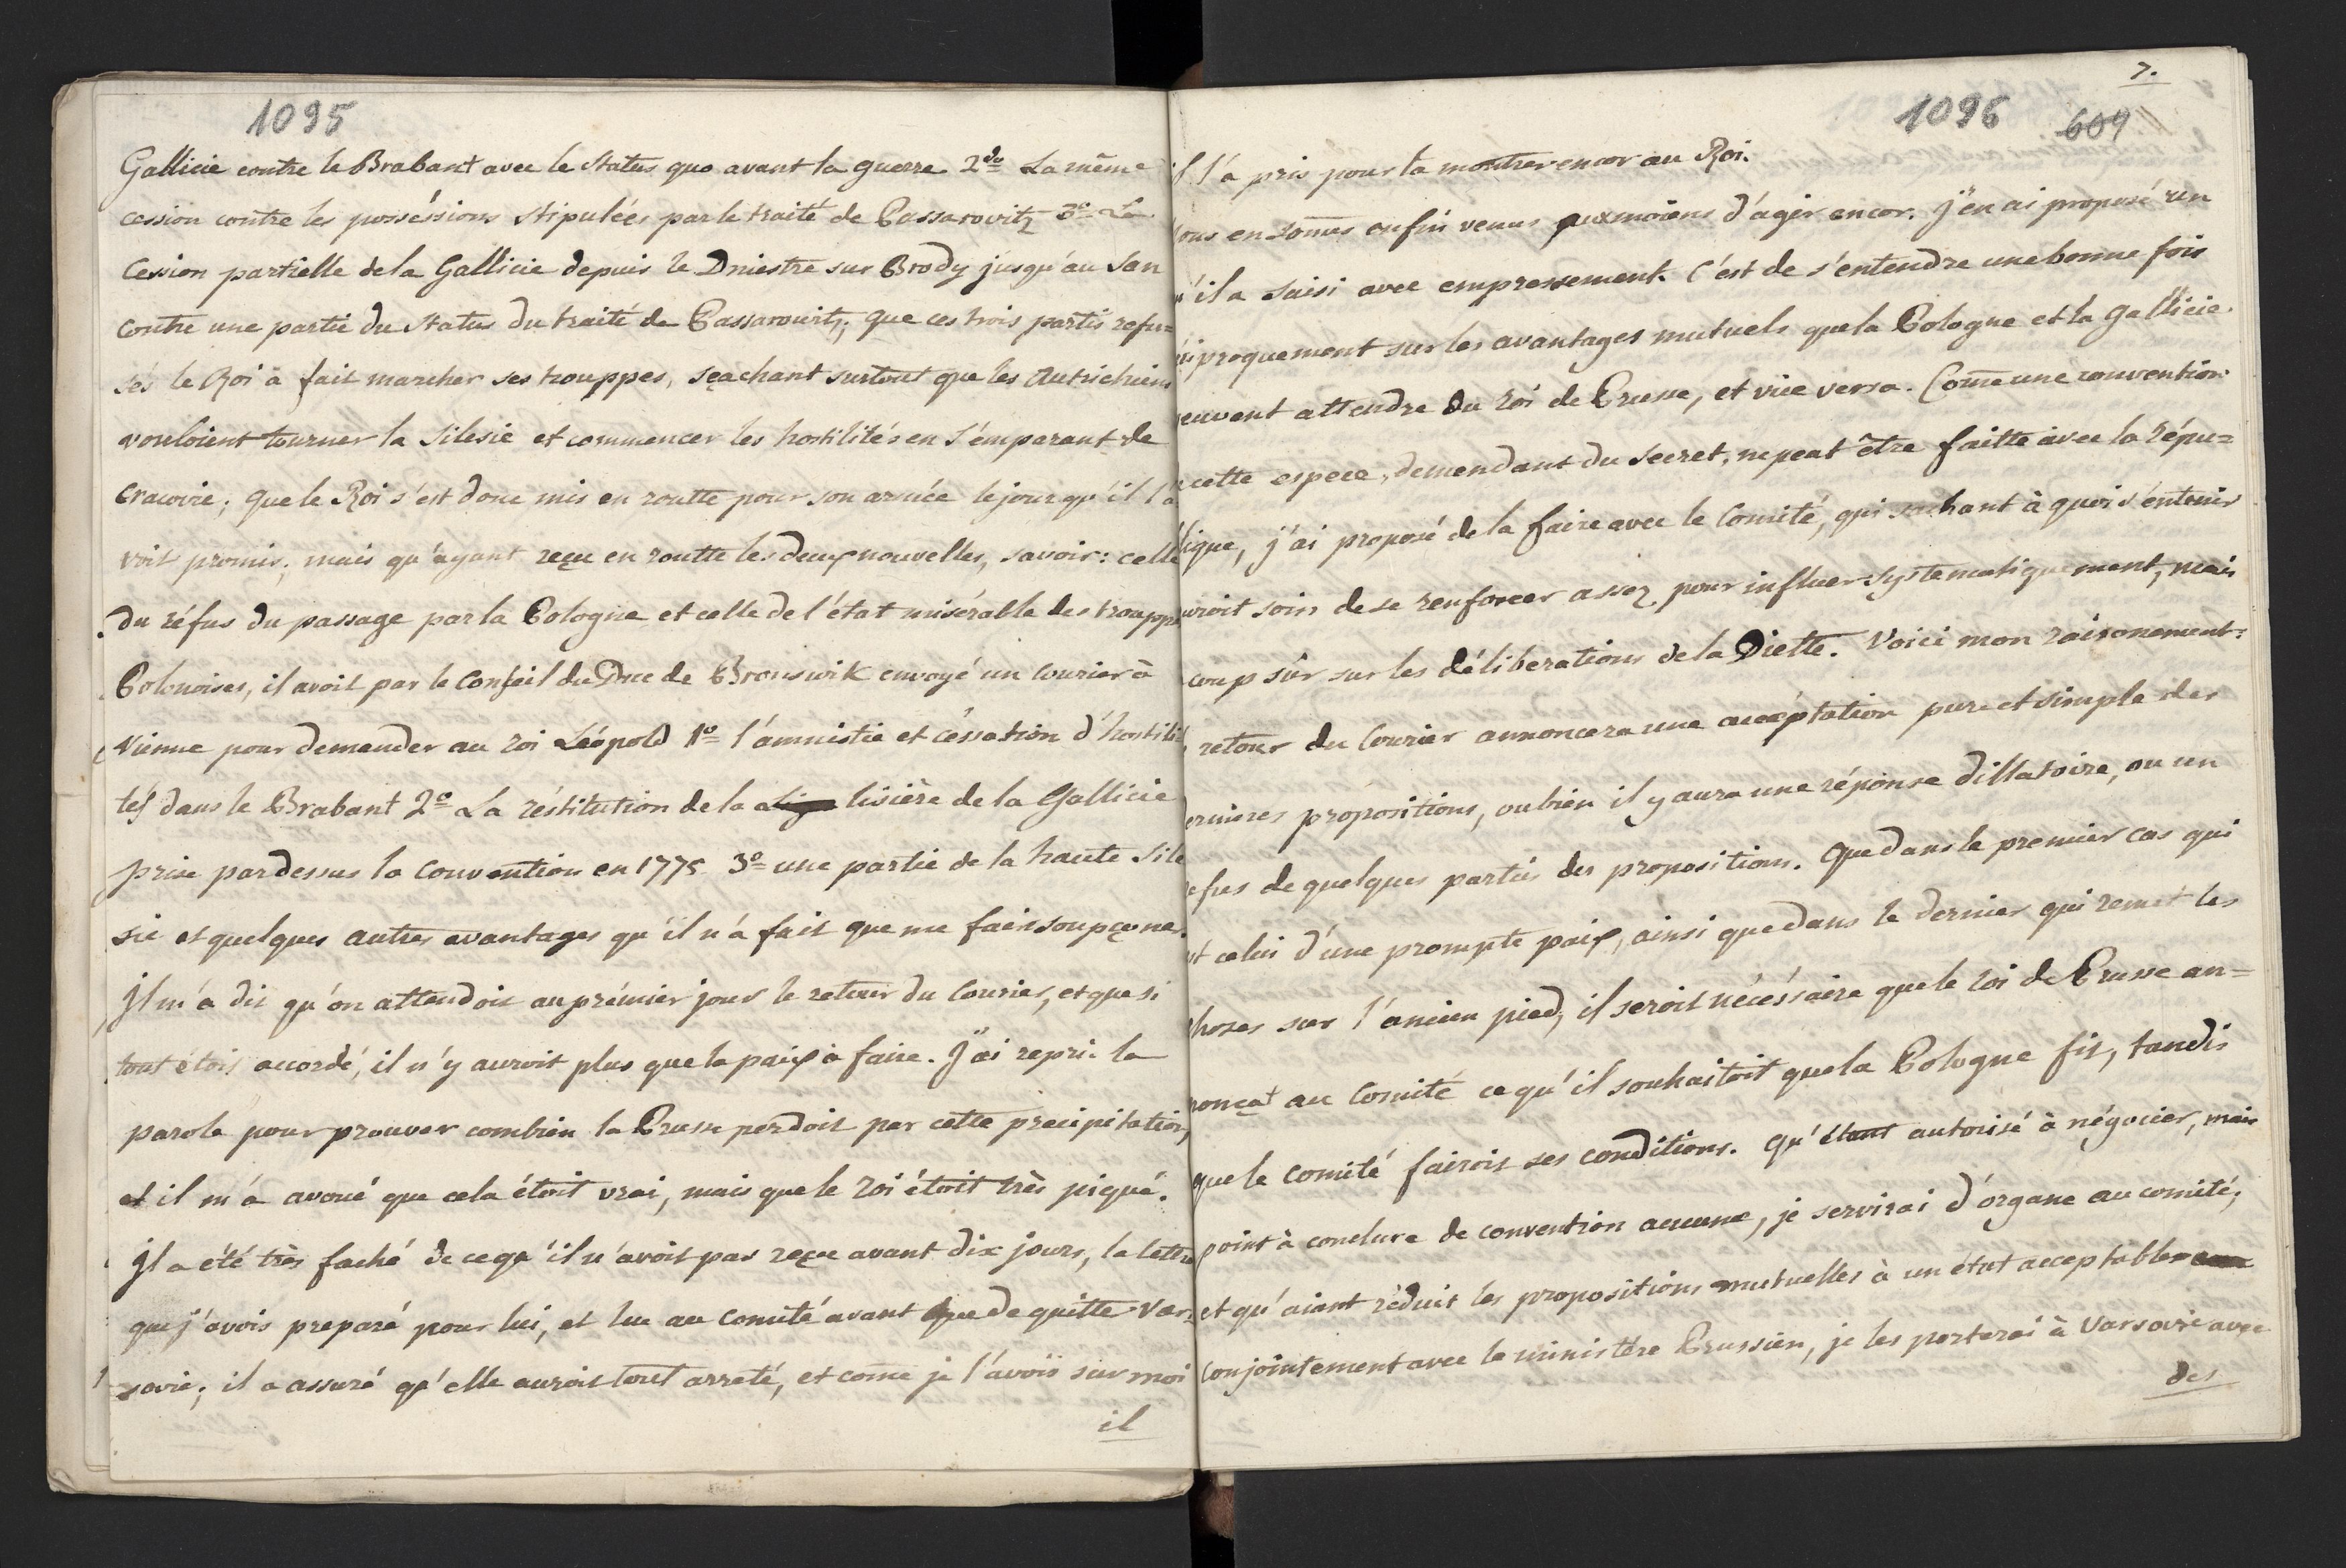 1095
Gallicie contre le Brabant avec le Status quo avant la guerre 2do La même
cession contre les posséssions stipulées par le traité de Passarovitz 3o La
Cession partielle de la Gallicie depuis le Dniestre sur Brody jusqu'au San
contre une partie du Status du traité de Passarowitz; que ces trois partis refu=
sés le Roi a fait marcher ses trouppes, sçachant surtout que les Autrichiens
vouloient tourner la Silesie et commencer les hostilités en s'emparant de
Cracovie; que le Roi s'est donc mis en routte pour son armée le jour qu'il l'a
voit promis; mais qu'ayant reçu en routte les deux nouvelles, savoir: celle
du réfus du passage par la Pologne et celle de l'état misérable des trouppes
Polonoises, il avoit par le Conseil du Duc de Bronswik envoyé un Courier à
Vienne pour demander au roi Léopold 1o l'amnistie et céssation d'hostili
tés dans le Brabant 2o La réstitution de la lisière de la Gallicie
prise pardessus la Convention en 1775 3o une partie de la haute Sile
sie et quelques autres avantages qu'il n'a fait que me faire soupçoner.
Il m'a dit qu'on attendoit au prémier jour le retour du Courier, et que si
tout étoit accordé, il n'y auroit plus que la paix à faire. J'ai repris la
parole pour prouver combien la Prusse perdoit par cette precipitation,
et il m'a avoué que cela étoit vrai, mais que le roi étoit très piqué.
Il a été très faché de ce qu'il n'avoit pas reçu avant dix jours, la lettre
que j'avois preparé pour lui, et lue au Comité avant que de quitte Var=
sovie; il a assuré qu'elle auroit tout arreté, et come je l'avois sur moi
il
7.
1096 609
il l'a pris pour la montrer encor au Roi.
ous en somes enfin venus aux moiens d'agir encor. j'en ai proposé un
qu'il a saisi avec empressement. C'est de s'entendre une bonne fois
ciproquement sur les avantages mutuels que la Pologne et la Gallicie
peuvent attendre du roi de Prusse, et vice versa. Come une convention
cette espece, demendant du secret, ne peut être faitte avec la répu=
lique, j'ai proposé de la faire avec le Comité, qui sachant à quoi s'entenir
uroit soin de se renforcer assez pour influer systematiquement, mais
coup sûr sur les déliberations de la Diette. Voici mon raisonement:
retour du Courier annoncera une accéptation pure et simple des
ernieres propositions, ou bien il y aura une réponse dillatoire, ou un
efus de quelques parties des propositions. Que dans le premier cas qui
st celui d'une prompte paix, ainsi que dans le dernier qui remet les
choses sur l'ancien pied, il seroit nécéssaire que le roi de Prusse an=
nonçat au Comité ce qu'il souhaitoit que la Pologne fit, tandis
que le comité fairoit ses conditions. Qu'étant autorisé à négocier, mais
point à conclure de convention aucune, je servirai d'organe au comité,
et qu'aiant réduit les propositions mutuelles à un état acceptable
conjointement avec le ministère Prussien, je les porterai à Varsovie avec
des